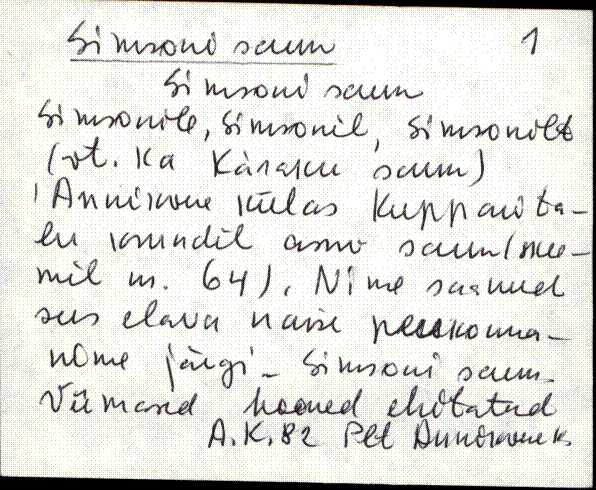 Simsoni saun 1
Simsoni saun
Simsonile, Simsonil, Simsonilt
(vt. ka Käraku saun)
Annikvere külas Kuppari ta-
lu krundil asuv saun (nu-
mil nr. 64). Nime saanud
sees elava naise perekonna-
nime järgi - Simsoni saun.
Viimased hooned ehitatud
A.K.82 Plt Annikvere k.